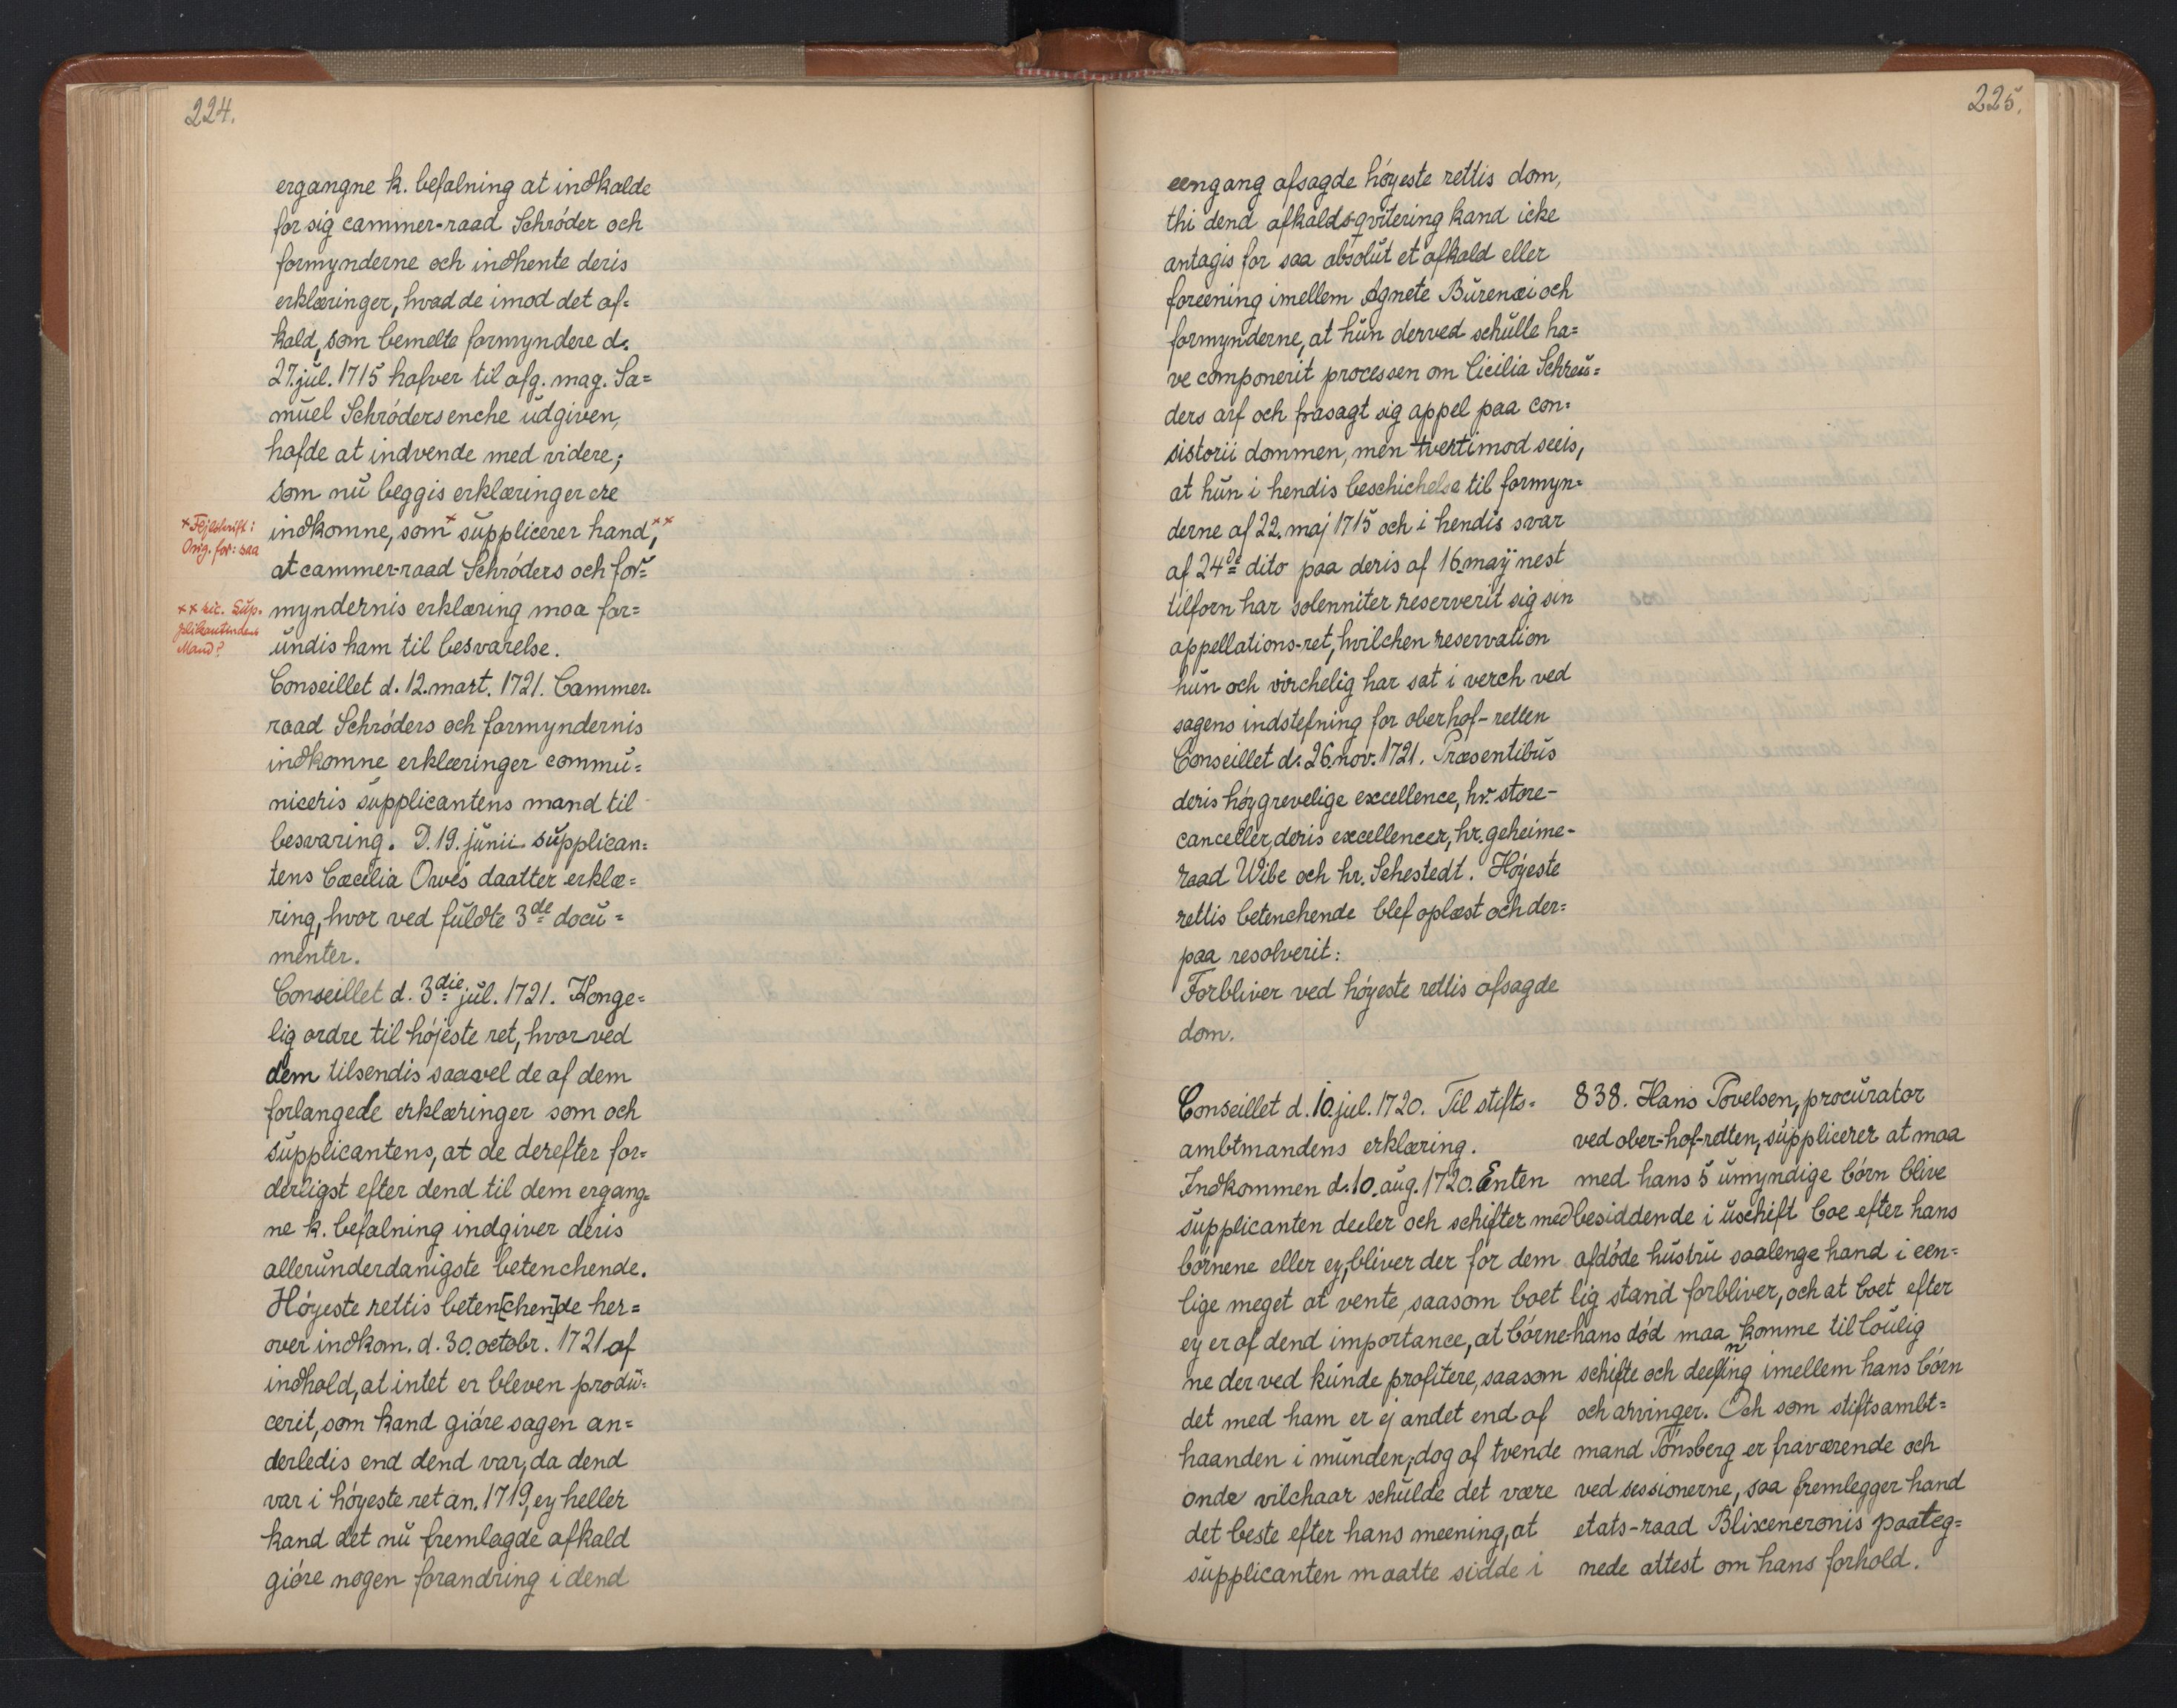 224.
ergangne k. befalning at indkalde
for sig cammer-raad Schróder och
formynderne och indhente deris
erklæringer, hvad de imod det af=
kald, som bemelte formyndere d.
27. jul. 1715 hafver til afg. mag. Sa=
muel Schróders enche udgiven,
hafde at indvende med videre;
som nu beggis erklæringer ere
indkomne, som× supplicerer hand,××
at cammer-raad Schróders och for=
myndernis erklæring maa for=
undis ham til besvarelse.
× Fejlskrift i
Orig. for: saa
×× sic. Sup=
plikantindens
Mand?
Conseillet d. 12. mart. 1721. Cammer=
raad Schróders och formyndernis
indkomne erklæringer commu=
niceris supplicantens mand til
besvaring. D. 19. junii supplican=
tens Cæcilia Orves daatter erklæ=
ring, hvor ved fuldte 3de docu=
menter.
Conseillet d. 3die jul. 1721. Konge=
lig ordre til hójeste ret, hvorved
dem tilsendis saavel de af dem
forlangede erklæringer som och
supplicantens, at de derefter for=
derligst efter dend til dem ergang=
ne k. befalning indgiver deris
allerunderdanigste betenchende.
Hóyeste rettis beten[chen]de her=
over indkom. d. 30. octobr. 1721 af
indhold, at intet er bleven produ=
cerit, som kand gióre sagen an=
derledis end dend var, da dend
var i hóyeste ret an. 1719, ey heller
kand det nu fremlagde afkald
gióre nogen forandring i dend
225.
eengang afsagde hóyeste rettis dom,
thi dend afkalds-qvitering kand icke
antagis for saa absolut et afkald eller
foreening imellem Agnete Burenæi och
formynderne, at hun derved schulle ha=
ve componerit processen om Cicilia Schreu=
ders arf och frasagt sig appel paa con=
sistorii dommen, men tvertimod seeis,
at hun i hendis beschichelse til formyn=
derne af 22. maj 1715 och i hendis svar
af 24de dito paa deris af 16. maÿ nest
tilforn har solenniter reserverit sig sin
appellations-ret, hvilchen reservation
hun och virchelig har sat i verch ved
sagens indstefning for oberhof-retten
Conseillet d. 26. nov. 1721. Præsentibus
deris hóygrevelige excellence, hr. store-
canceller, deris excellencer, hr. geheime-
raad Wibe och hr. Sehestedt. Hóyeste
rettis betenchende blef oplæst och der=
paa resolverit:
Forbliver ved hóyeste rettis afsagde
dom.
Conseillet d. 10. jul. 1720. Til stifts=
ambtmandens erklæring.
Indkommen d. 10. aug. 1720. Enten
supplicanten deeler och schifter med
bórnene eller ey, bliver der for dem
lige meget at vente, saasom boet
ey er af dend importance, at bórne=
ne der ved kunde profitere, saasom
det med ham er ej andet end af
haanden i munden; dog af tvende
onde vilchaar schulde det være
det beste efter hans meening, at
supplicanten maatte sidde i
838. Hans Povelsen, procurator
ved ober-hof-retten, supplicerer at maa
med hans 5 umyndige bórn blive
besiddende i uschift boe efter hans
afdóde hustru saalenge hand i een=
lig stand forbliver, och at boet efter
hans dód maa komme til loulig
schifte och deelning imellem hans bórn
och arvinger. Och som stiftsambt=
mand Tónsberg er fraværende och
ved sessionerne, saa fremlegger hand
etats-raad Blixencronis paateg=
nede attest om hans forhold.